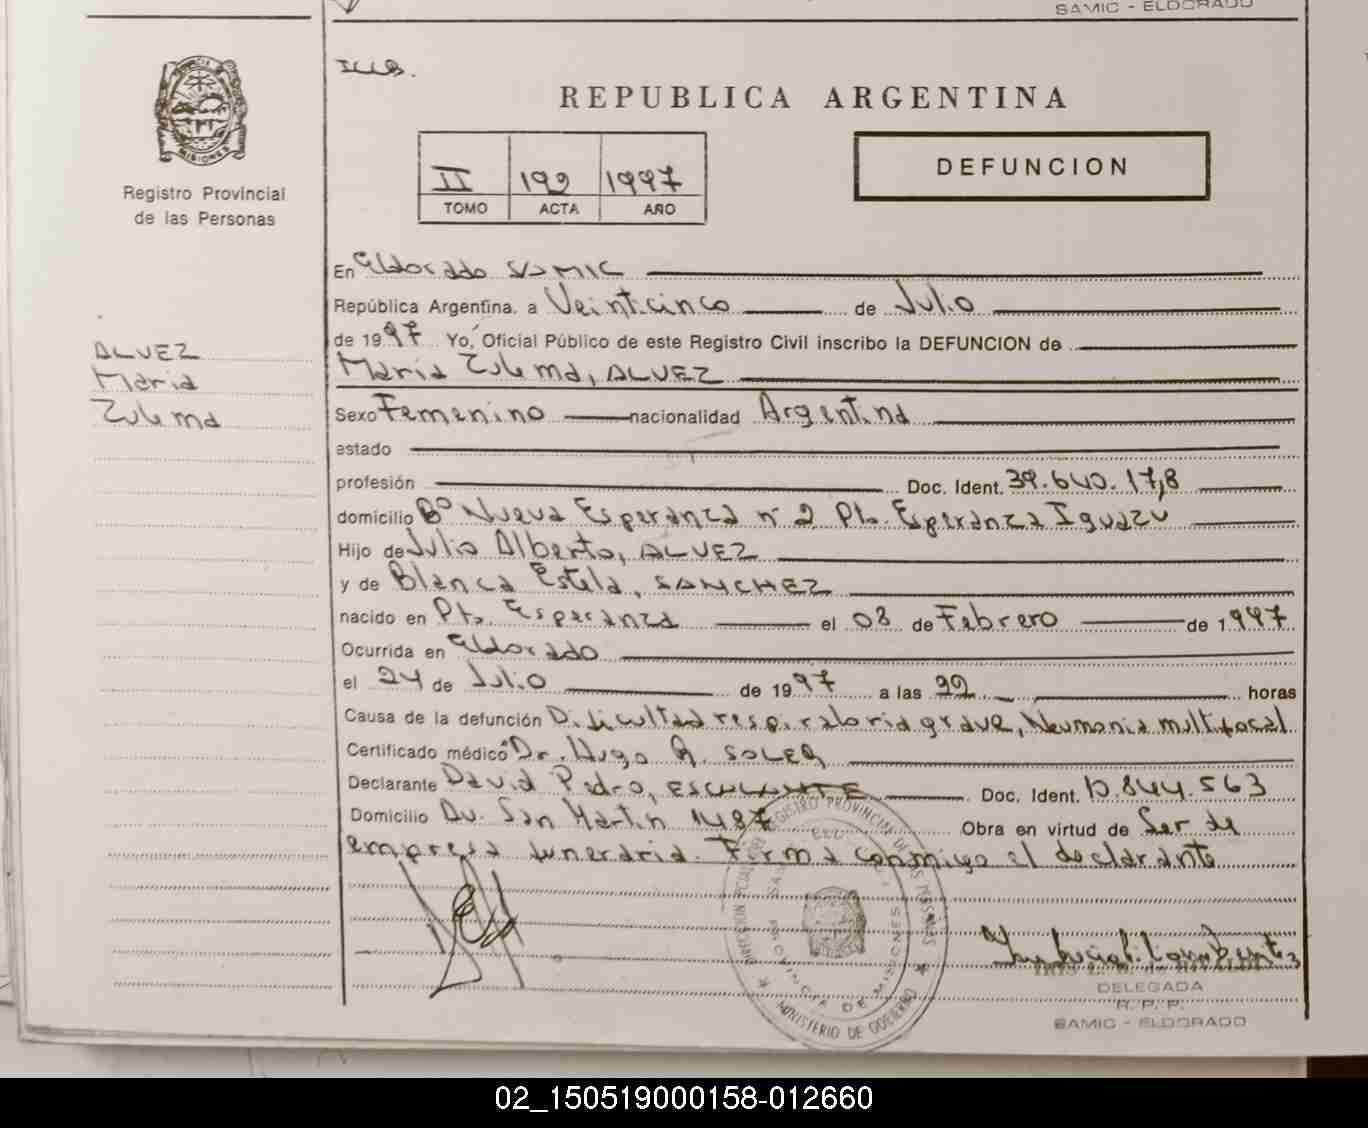 SAMIC - ELDORADO
REPUBLICA ARGENTINA
DEFUNCION
II 192 1997
TOMO ACTA AÑO
MISIONES
Registro Provincial
de las Personas
ALVEZ
Maria
Zulema
En Eldorado SAMIC
República Argentina, a Veinticinco de Julio
de 1997 Yo, Oficial Público de este Registro Civil inscribo la DEFUNCION de
Maria Zulema, ALVEZ
Sexo Femenino nacionalidad Argentina
estado
profesión Doc. Ident. 39.640.178
domicilio Bº Nueva Esperanza nº 2 Pto. Esperanza Iguazu
Hijo de Julio Alberto, ALVEZ
y de Blanca Estela, SANCHEZ
nacido en Pto. Esperanza el 08 de Febrero de 1997
Ocurrida en Eldorado
el 24 de Julio de 1997 a las 22 horas
Causa de la defunción Dificultad respiratoria grave, Neumonia multifocal
Certificado médico Dr. Hugo A. SOLER
Declarante David Pedro, ESCALANTE Doc. Ident. 10.844.563
Domicilio Av. San Martin 1487 Obra en virtud de Ser de
empresa funeraria. Firma conmigo el declarante
DIRECCION REGISTRO PROVINCIAL DE LAS PERSONAS
PROVINCIA DE MISIONES
MINISTERIO DE GOBIERNO
DELEGADA
R. P. P.
SAMIC - ELDORADO
02_150519000158-012660